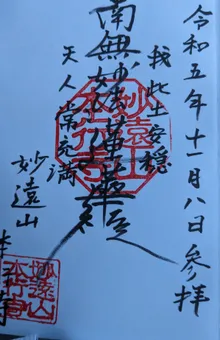 令和五年十一月八日参拝
我此土安穏
南無妙法蓮華経
天人常充満
妙遠山
本行寺
妙遠山
本行寺